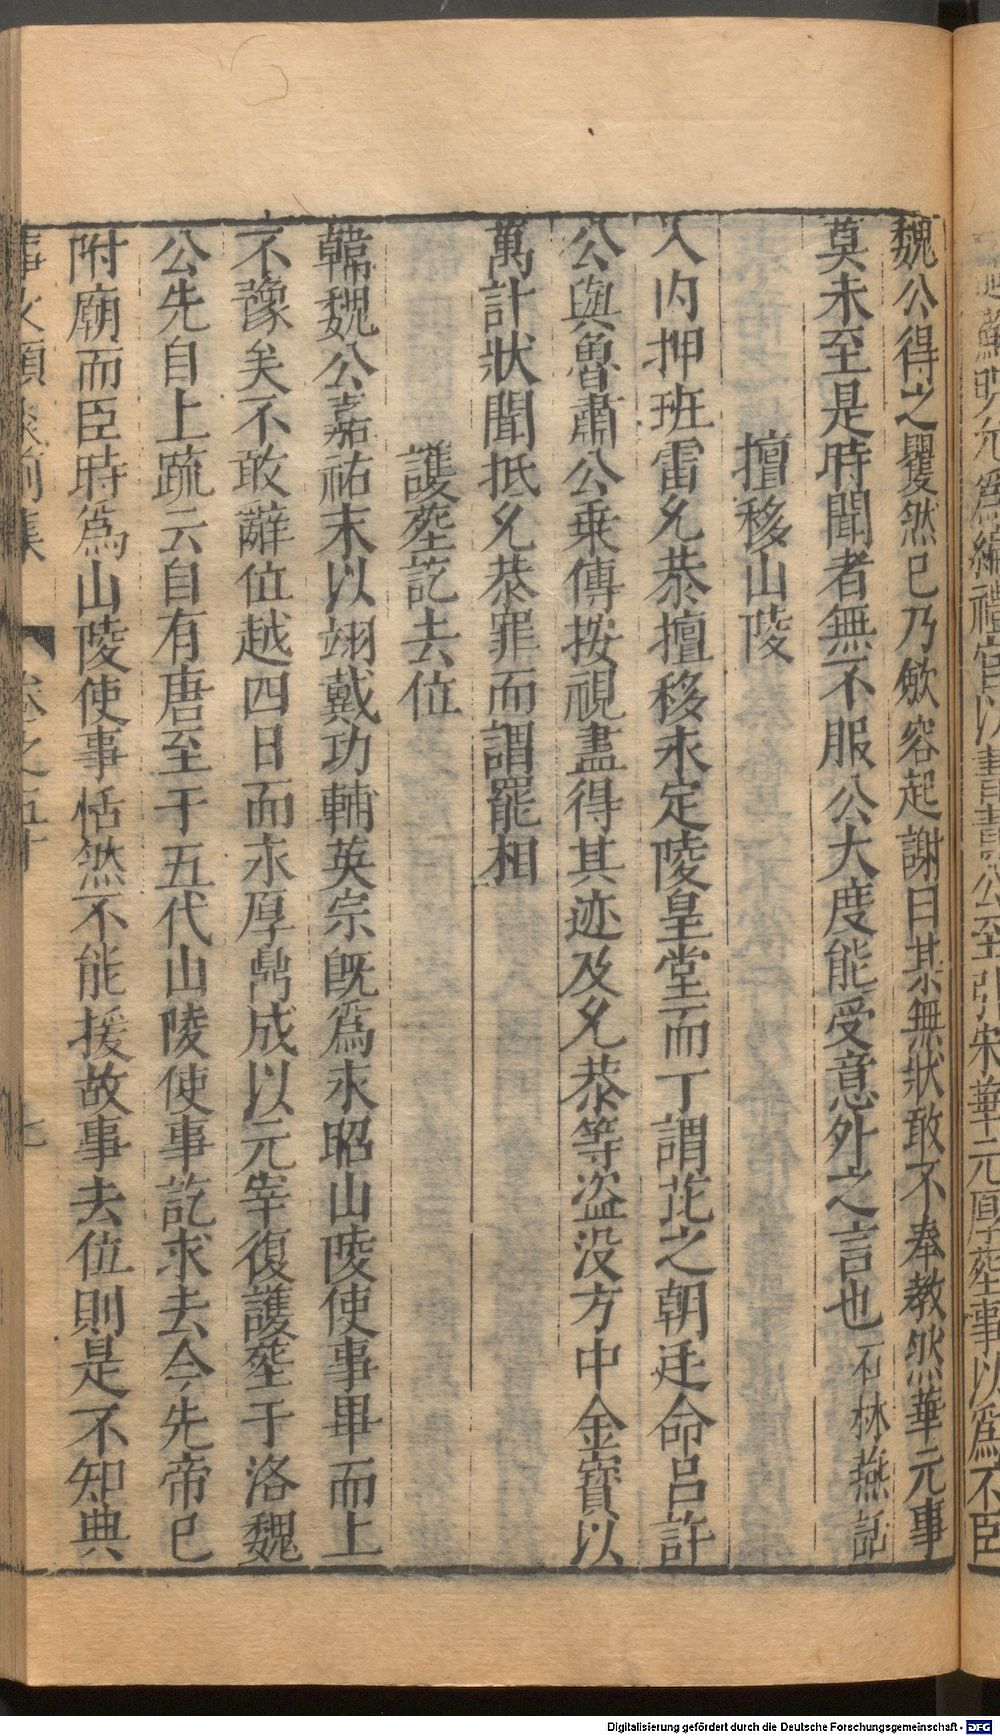 魏公得之矍然已乃斂容起謝曰某無狀敢不奉教然華元事
莫未至是時聞者無不服公大度能受意外之言也 石林燕話
擅移山陵
入內押班雷允恭擅移永定陵皇堂而丁謂芘之朝廷命呂許
公與魯肅公乗傳按視盡得其迹及允恭等盜没方中金寳以
萬計狀聞抵允恭罪而謂罷相
護塟訖去位
韓魏公嘉祐末以翊戴功輔英宗旣爲永昭山陵使事畢而上
不豫矣不敢辭位越四日而永厚鼎成以元宰復護塟于洛魏
公先自上疏云自有唐至于五代山陵使事訖求去今先帝已
附廟而臣時爲山陵使事恬然不能援故事去位則是不知典
事文類聚前集 卷之五十 七
Digitalisierung gefördert durch die Deutsche Forschungsgemeinschaft - DFG